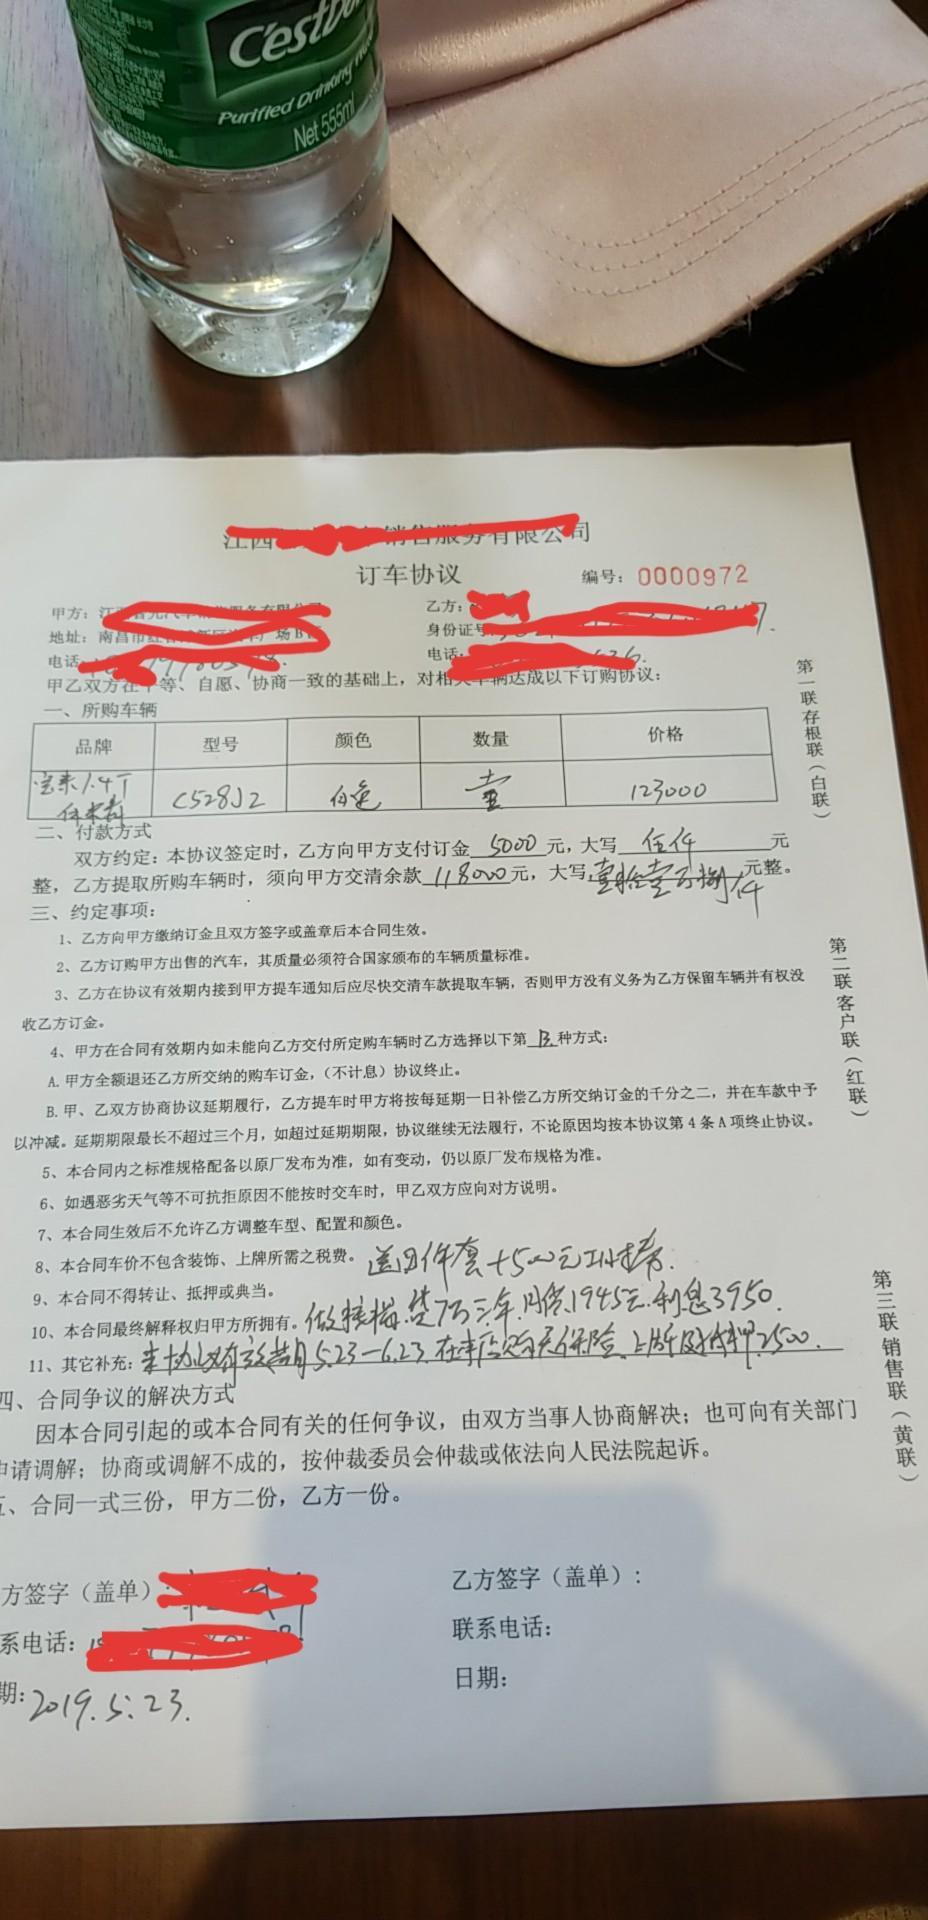 C'est
Purified Drinking
Net 555ml
江西 销售服务有限公司
订车协议
编号：0000972
甲方：江西 服务有限公司
乙方：
地址：南昌市红 场B
身份证号
电话：
电话：
甲乙双方在平等、自愿、协商一致的基础上，对相关车辆达成以下订购协议：
一、所购车辆
品牌 型号 颜色 数量 价格
宝来1.4T C528J2 白色 壹 123000
二、付款方式
双方约定：本协议签定时，乙方向甲方支付订金 5000 元，大写 伍仟 元
整，乙方提取所购车辆时，须向甲方交清余款 118000 元，大写 壹拾壹万捌仟 元整。
三、约定事项：
1、乙方向甲方缴纳订金且双方签字或盖章后本合同生效。
2、乙方订购甲方出售的汽车，其质量必须符合国家颁布的车辆质量标准。
3、乙方在协议有效期内接到甲方提车通知后应尽快交清车款提取车辆，否则甲方没有义务为乙方保留车辆并有权没
收乙方订金。
4、甲方在合同有效期内如未能向乙方交付所定购车辆时乙方选择以下第 B 种方式：
A.甲方全额退还乙方所交纳的购车订金，（不计息）协议终止。
B.甲、乙双方协商协议延期履行，乙方提车时甲方将按每延期一日补偿乙方所交纳订金的千分之二，并在车款中予
以冲减。延期期限最长不超过三个月，如超过延期期限，协议继续无法履行，不论原因均按本协议第4条A项终止协议。
5、本合同内之标准规格配备以原厂发布为准，如有变动，仍以原厂发布规格为准。
6、如遇恶劣天气等不可抗拒原因不能按时交车时，甲乙双方应向对方说明。
7、本合同生效后不允许乙方调整车型、配置和颜色。
8、本合同车价不包含装饰、上牌所需之税费。送四件套+500元工时费.
9、本合同不得转让、抵押或典当。
10、本合同最终解释权归甲方所拥有。做按揭.贷7万三年.月供1945元.利息3950.
11、其它补充：本协议有效期5.23—6.23.在本店购买保险、上牌 2500.
四、合同争议的解决方式
因本合同引起的或本合同有关的任何争议，由双方当事人协商解决；也可向有关部门
申请调解；协商或调解不成的，按仲裁委员会仲裁或依法向人民法院起诉。
五、合同一式三份，甲方二份，乙方一份。
方签字（盖单）：
乙方签字（盖单）：
系电话：
联系电话：
期：2019.5.23.
日期：
第一联存根联（白联）
第二联客户联（红联）
第三联销售联（黄联）